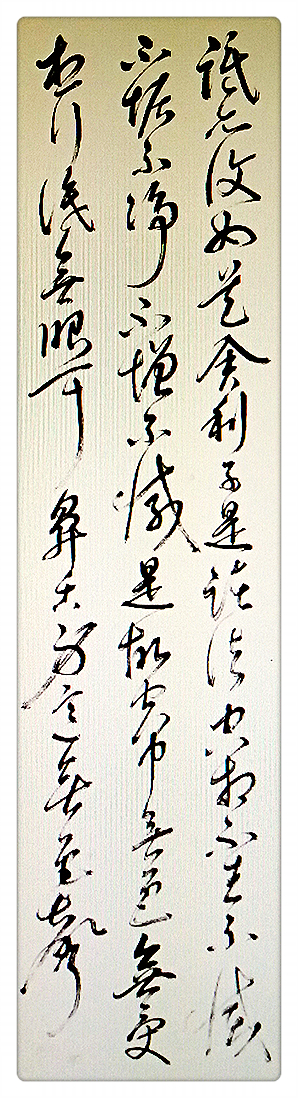 識亦復如是舍利子是諸法空相不生不滅
不垢不淨不增不減是故空中無色無受
想行識無眼耳鼻舌身意無色聲